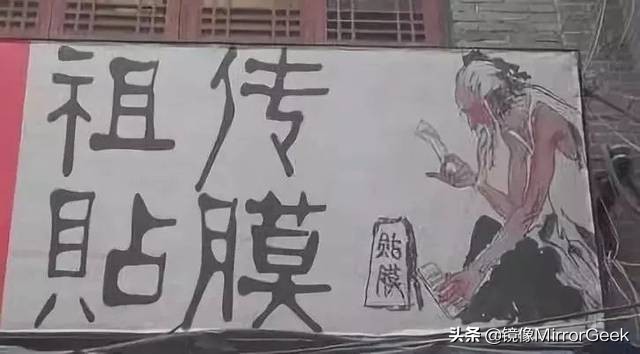 祖传
貼膜
貼膜
头条 @镜像MirrorGeek